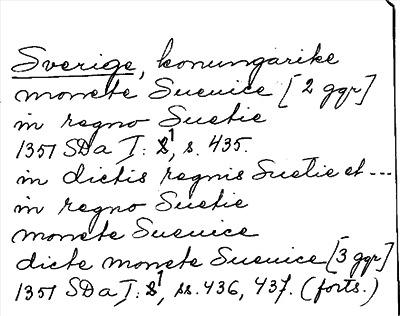 Sverige, konungarike
monete Suenice [2 ggr]
in regno Suetie
1351 SDa I: 1, s. 435.
in dictis regnis Suetie et ---
in regno Suetie
monete Suenice
dicte monete Suenice [3 ggr]
1351 SDa I: 1, ss. 436, 437. (forts.)